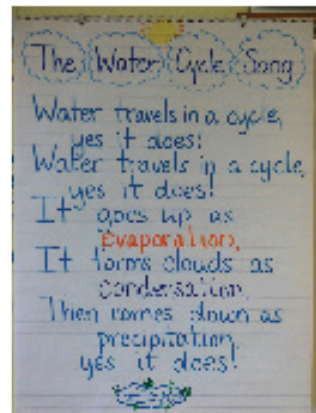 The Water Cycle Song
Water travels in a cycle,
yes it does!
Water travels in a cycle,
yes it does!
It goes up as
evaporation,
It forms clouds as
condensation,
Then comes down as
precipitation,
yes it does!